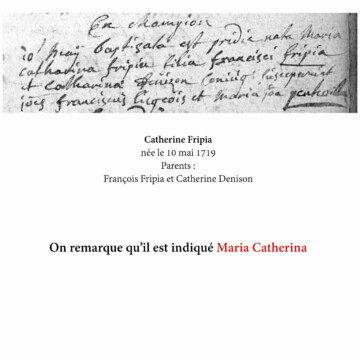 En Champion
10 maÿ baptisata est pridie nata Maria
catharina fripia filia francisci fripia
et catharina coniug. susceperunt
franciscus et maria
Catherine Fripia
née le 10 mai 1719
Parents :
François Fripia et Catherine Denison
On remarque qu'il est indiqué Maria Catherina